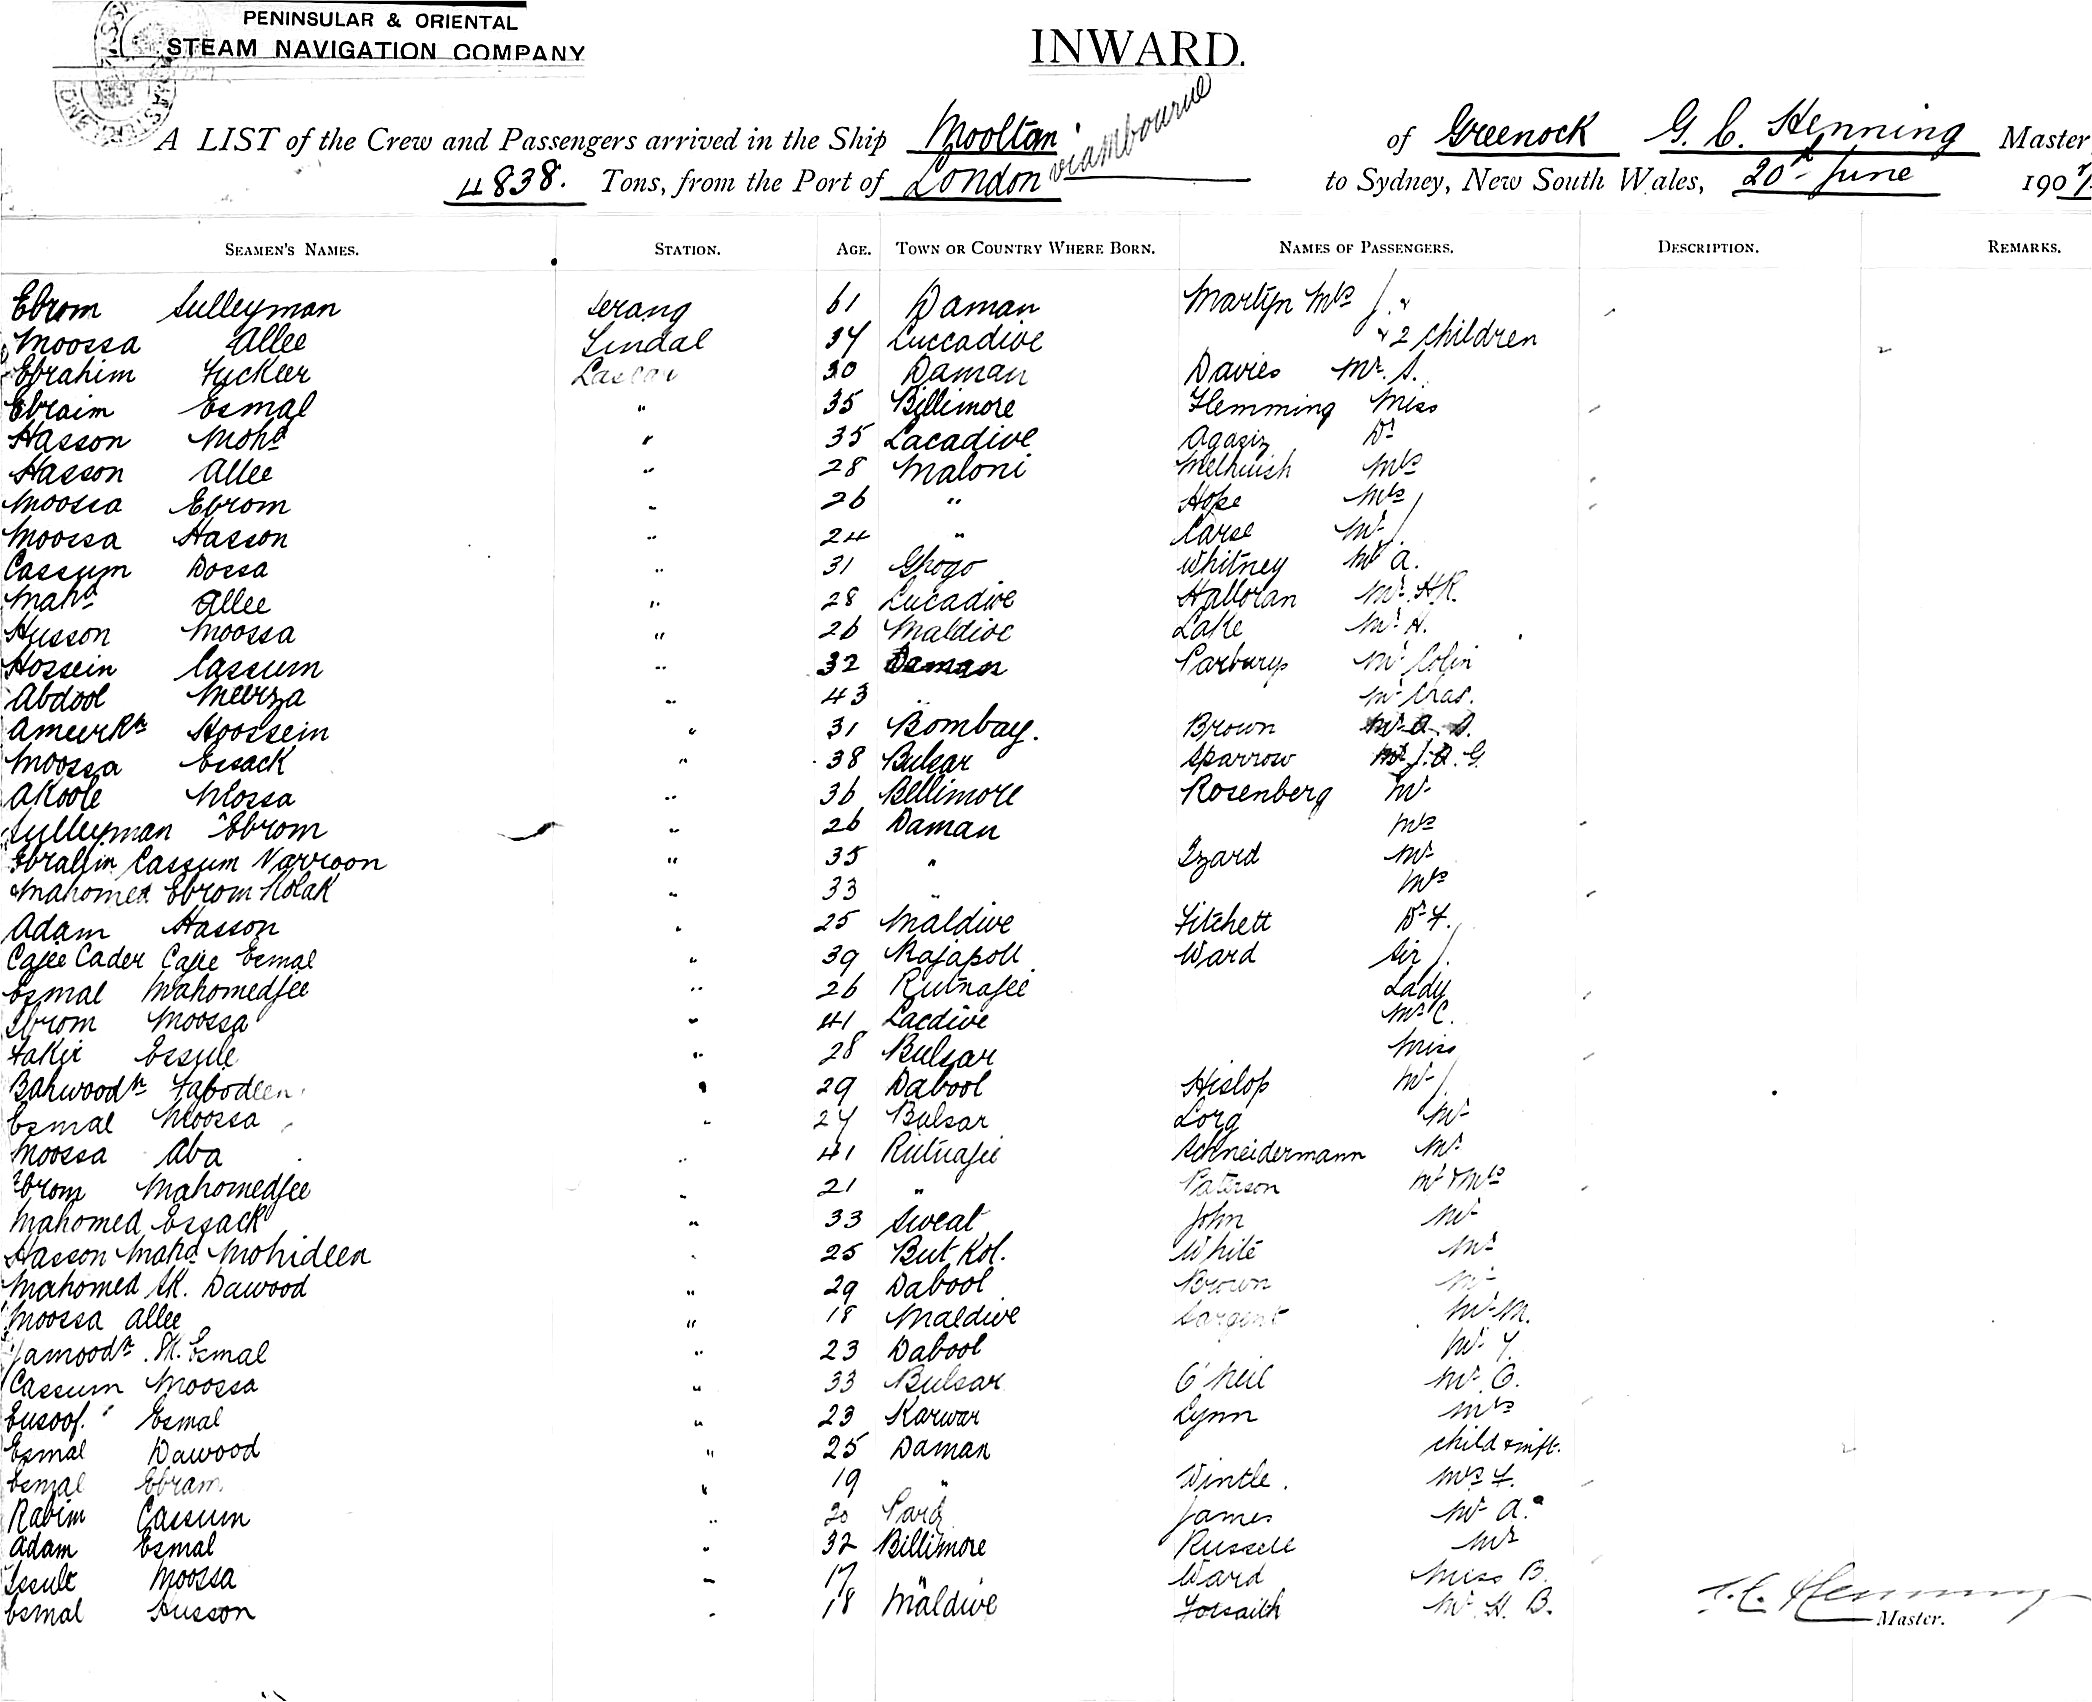 PENINSULAR & ORIENTAL
STEAM NAVIGATION COMPANY
INWARD.
A LIST of the Crew and Passengers arrived in the Ship Mooltan of Greenock G. C. Henning Master
4838. Tons, from the Port of London to Sydney, New South Wales, 20th June 1907
SEAMEN'S NAMES. STATION. AGE. TOWN OR COUNTRY WHERE BORN. NAMES OF PASSENGERS. DESCRIPTION. REMARKS.
Ebrom Sulleyman Serang 61 Daman Martyn Mrs J. &
Moossa Allee Tindal 34 Luccadive & 2 Children
Ebrahim Fuckeer Lascar 30 Daman Davies Mr. S.
Ebraim Esmal " 35 Billimore Flemming Miss
Hasson Mohd " 35 Lacadive Agassiz Dr
Hasson Allee " 28 Maloni Melhuish Mrs
Moossa Ebrom " 26 " Hope Mrs
Moossa Hasson " 24 " Carse Mr
Cassum Dossa " 31 Ghogo Whitney Mr A.
Mahd Allee " 28 Lucadive Halloran Mr. H.R.
Husson Moossa " 26 Maldive Lake Mr H.
Hossein Cassum " 32 Daman Parbury Mr Colin
Abdool Meerza " 43 " Mr Chas.
Ameerkn Hoossein " 31 Bombay. Brown Mr A. S.
Moossa Essack " 38 Bulsar Sparrow Mr J. A. G.
Akoole Mossa " 36 Bellimore Rosenberg Mr
Sulleyman Ebrom " 26 Daman Mrs
Ebrahim Cassum Narroon " 35 " Izard Mr
Mahomed Ebrom Kolak " 33 " Mrs
Adam Hasson " 25 Maldive Fitchett Dr F.
Cajee Cader Cajee Esmal " 39 Rajapoll Ward Sir J.
Esmal Mahomedjee " 26 Rutnajee Lady
Ebrom Moossa " 41 Lacdive Mr C.
Fakir Essule " 28 Bulsar Miss
Bahwoodn Fabodeen " 29 Dabool Hislop Mr
Esmal Moossa " 24 Bulsar Lorg Mr
Moossa Aba " 41 Rutnajee Schneidermann Mr
Ebrom Mahomedjee " 21 " Paterson Mr & Mrs
Mahomed Essack " 33 Sweat John Mr
Hasson Mahd Mohideen " 25 But Kol. White Mr
Mahomed Sk. Dawood " 29 Dabool Brown Mr
Moossa Allee " 18 Maldive Sargent Mr M.
Esmal " 23 Dabool Mr Y.
Cassum Moossa " 33 Bulsar O'Neil Mr O.
Eusoof. Esmal " 23 Karwar Lynn Mrs
Esmal Dawood " 25 Daman child & inft.
Esmal Ebram " 19 " Vintle. Mrs F.
Rahim Cassum " 20 James Mr A.
Adam Esmal " 32 Billimore Russell Mr
Issule Moossa " 17 " Ward Miss B.
Esmal Husson " 18 Maldive Forsaith Mr H. B.
G. C. Henning
Master.